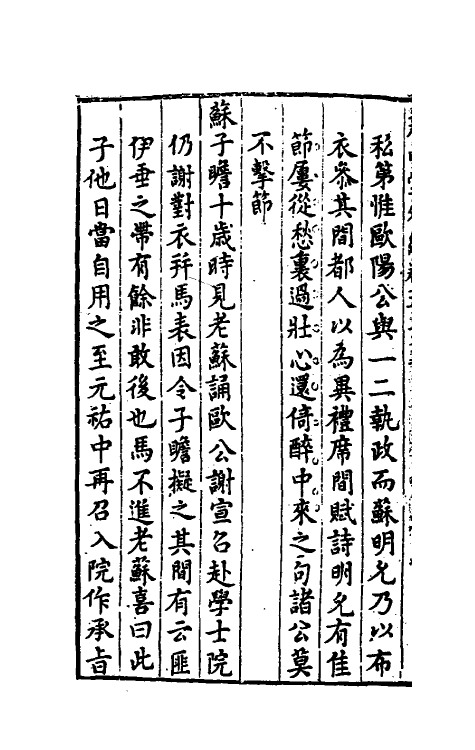 私第惟歐陽公與一二執政而蘇明允乃以布
衣叅其間都人以為異禮席間賦詩明允有佳
節屢從愁裏過壯心還倚醉中來之句諸公莫
不擊節
蘇子瞻十歲時見老蘇誦歐公謝宣召赴學士院
仍謝對衣并馬表因令子瞻擬之其間有云匪
伊垂之帶有餘非敢後也馬不進老蘇喜曰此
子他日當自用之至元祐中再召入院作承旨